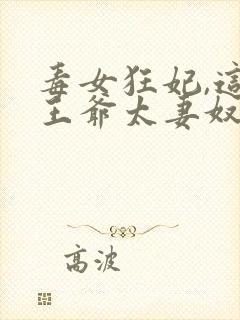 毒女狂妃,這
王爺太妻奴
高波